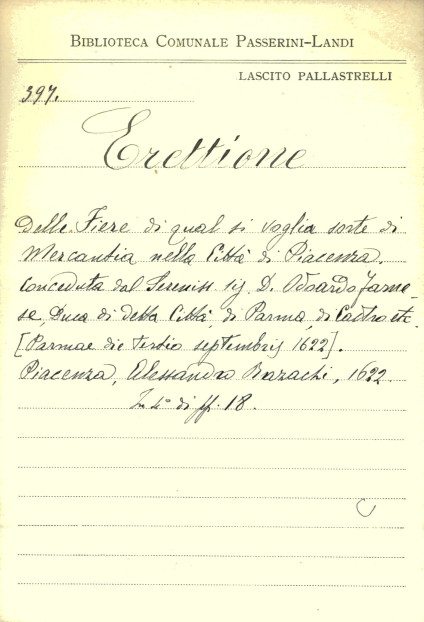 BIBLIOTECA COMUNALE PASSERINI-LANDI
LASCITO PALLASTRELLI
397.
Erettione
delle Fiere di qual si voglia sorte di
Mercantia nella Città di Piacenza.
Conceduta dal Sereniss. sig. D. Odoardo Farne-
se, Duca di detta Città, di Parma, di Castro etc.
[Parmae die tertio septembris 1622].
Piacenza, Alessandro Bazachi, 1622
In 4° di ff. 18.